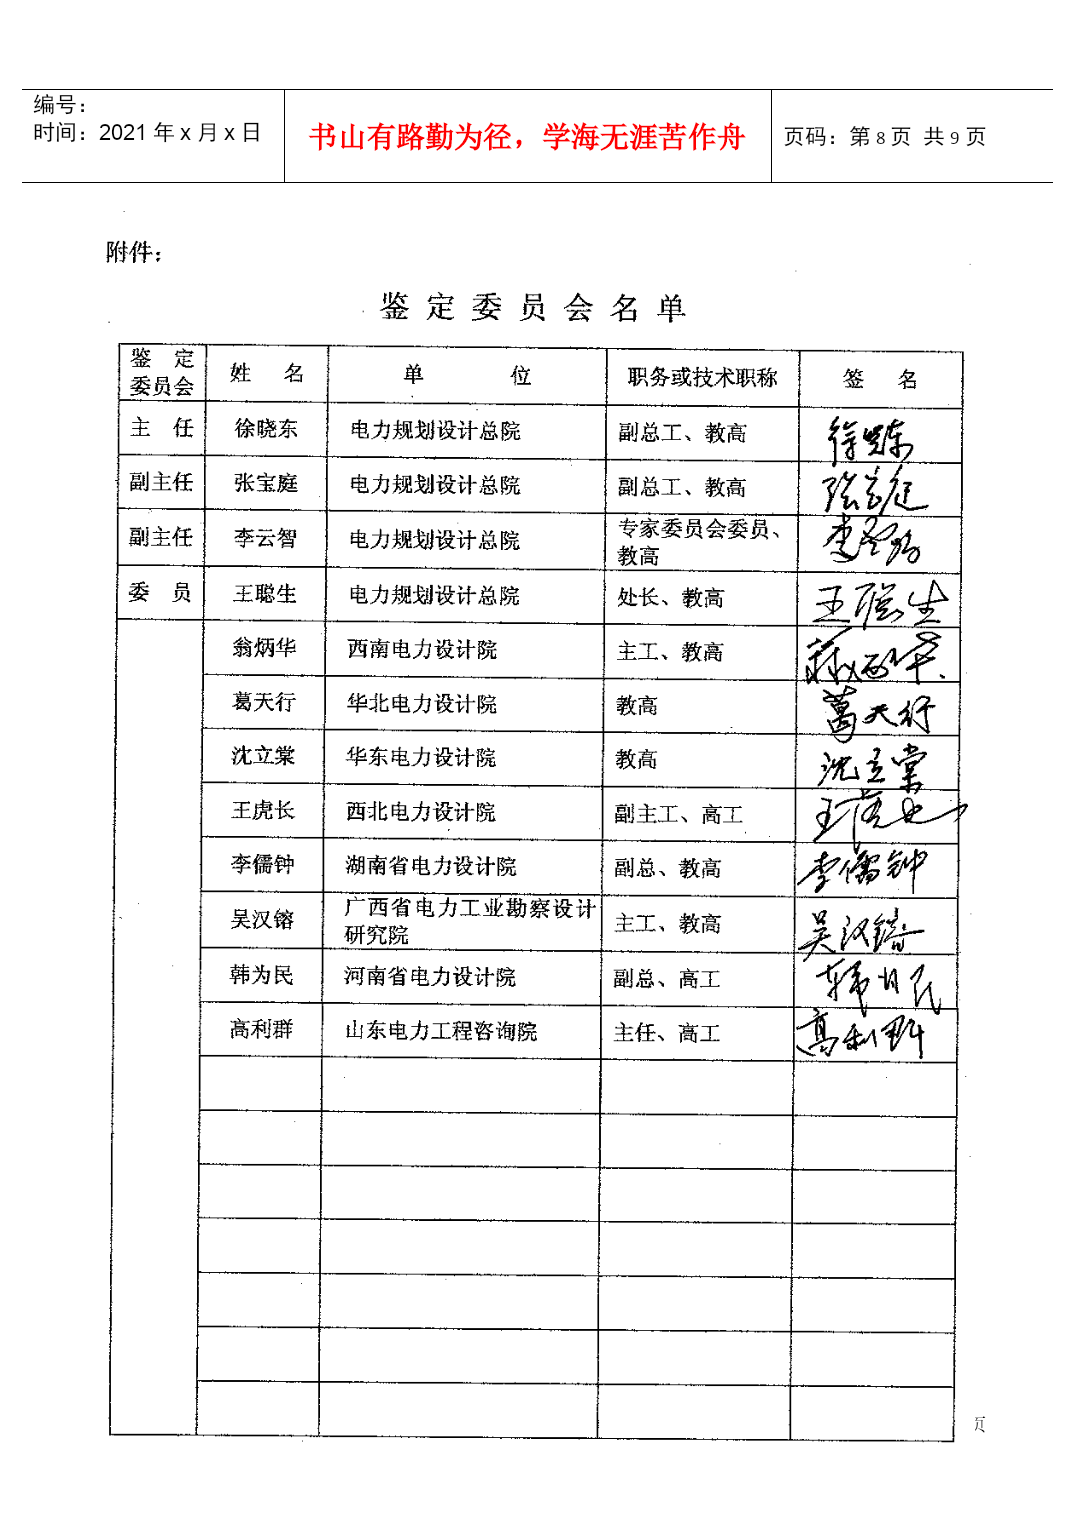 编号：
时间：2021年x月x日
书山有路勤为径，学海无涯苦作舟
页码：第8页 共9页
附件：
鉴定委员会名单
鉴定委员会 姓名 单位 职务或技术职称 签名
主任 徐晓东 电力规划设计总院 副总工、教高 徐晓东
副主任 张宝庭 电力规划设计总院 副总工、教高 张宝庭
副主任 李云智 电力规划设计总院 专家委员会委员、教高 李云智
委员 王聪生 电力规划设计总院 处长、教高 王聪生
翁炳华 西南电力设计院 主工、教高 翁炳华
葛天行 华北电力设计院 教高 葛天行
沈立棠 华东电力设计院 教高 沈立棠
王虎长 西北电力设计院 副主工、高工 王虎长
李儒钟 湖南省电力设计院 副总、教高 李儒钟
吴汉镕 广西省电力工业勘察设计研究院 主工、教高 吴汉镕
韩为民 河南省电力设计院 副总、高工 韩为民
高利群 山东电力工程咨询院 主任、高工 高利群
页